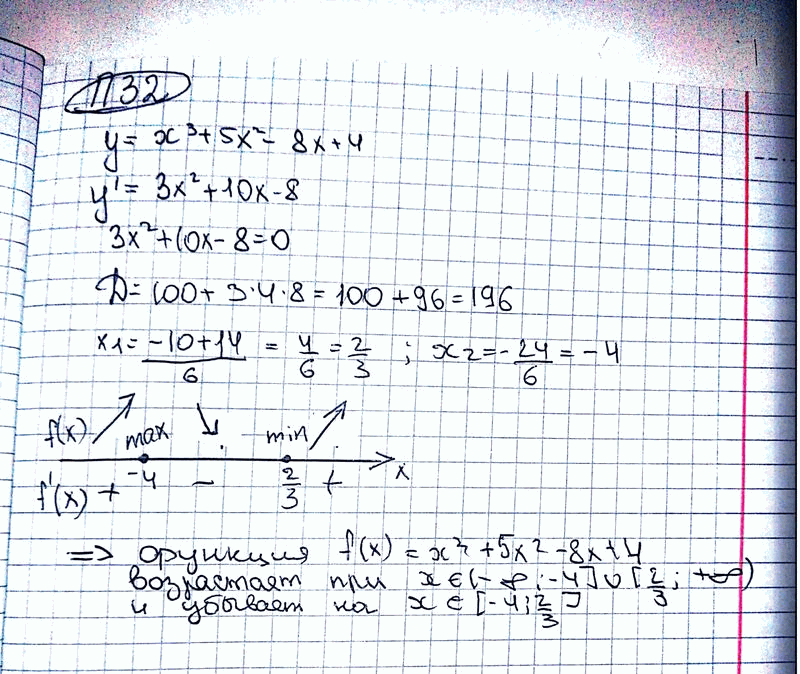 П32
y = x³ + 5x² - 8x + 4
y' = 3x² + 10x - 8
3x² + 10x - 8 = 0
D = 100 + 3·4·8 = 100 + 96 = 196
x1 = (-10+14)/6 = 4/6 = 2/3 ; x2 = -24/6 = -4
f(x) max min
-4 2/3 x
f'(x) + - +
=> функция f(x) = x³ + 5x² - 8x + 4
возрастает при x ∈ (-∞; -4] ∪ [2/3; +∞)
и убывает на x ∈ [-4; 2/3]